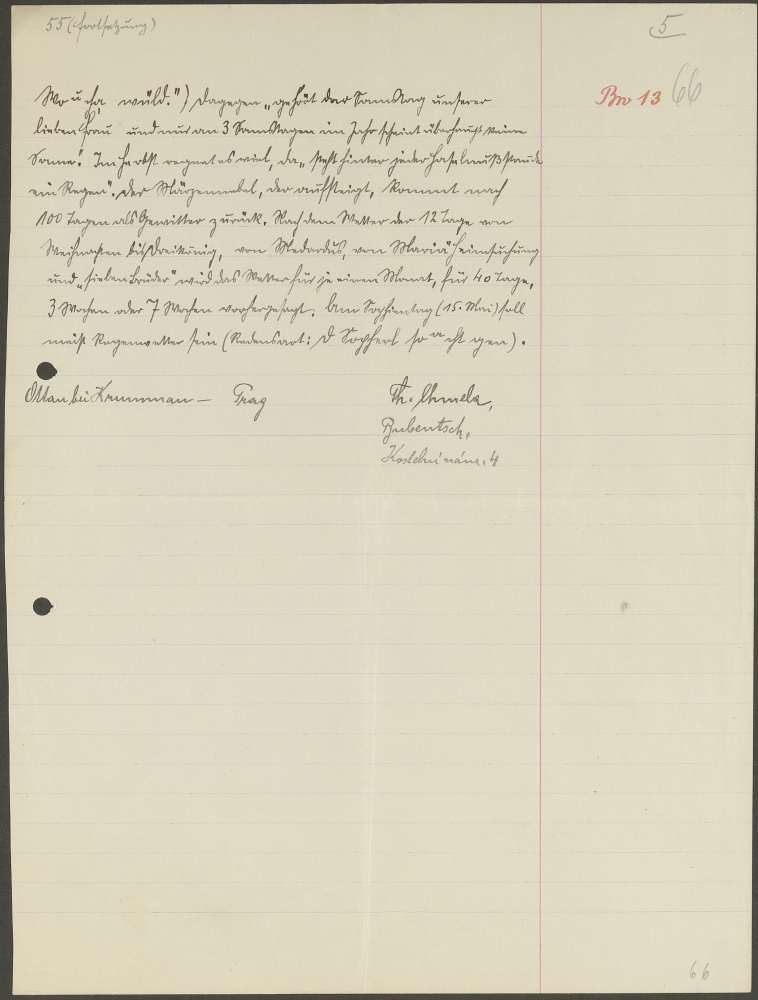 55 (Fortsetzung)
5
Bw 13 66
Wo u cha wüld.") Dagegen „gehört der Samstag unserer
lieben Frau und nur an 3 Samstagen im Jahr scheint überhaupt keine
Sonne". Im Herbst regnet es viel, da „steht hinter jeder Haselnußstaude
ein Regen". Der Märzennebel, der aufsteigt, kommt nach
100 Tagen als Gewitter zurück. Nach dem Wetter der 12 Tage von
Weihnachten bis Dreikönig, von Medardus, von Mariä Heimsuchung
und „sieben Brüder" wird das Wetter für je einen Monat, für 40 Tage,
3 Wochen oder 7 Wochen vorhergesagt. Am Sophientag (15. Mai) soll
meist Regenwetter sein (Redensart: D Sopherl
Ottau bei Krummau – Prag
Th. Chmela,
Bubentsch,
4
66